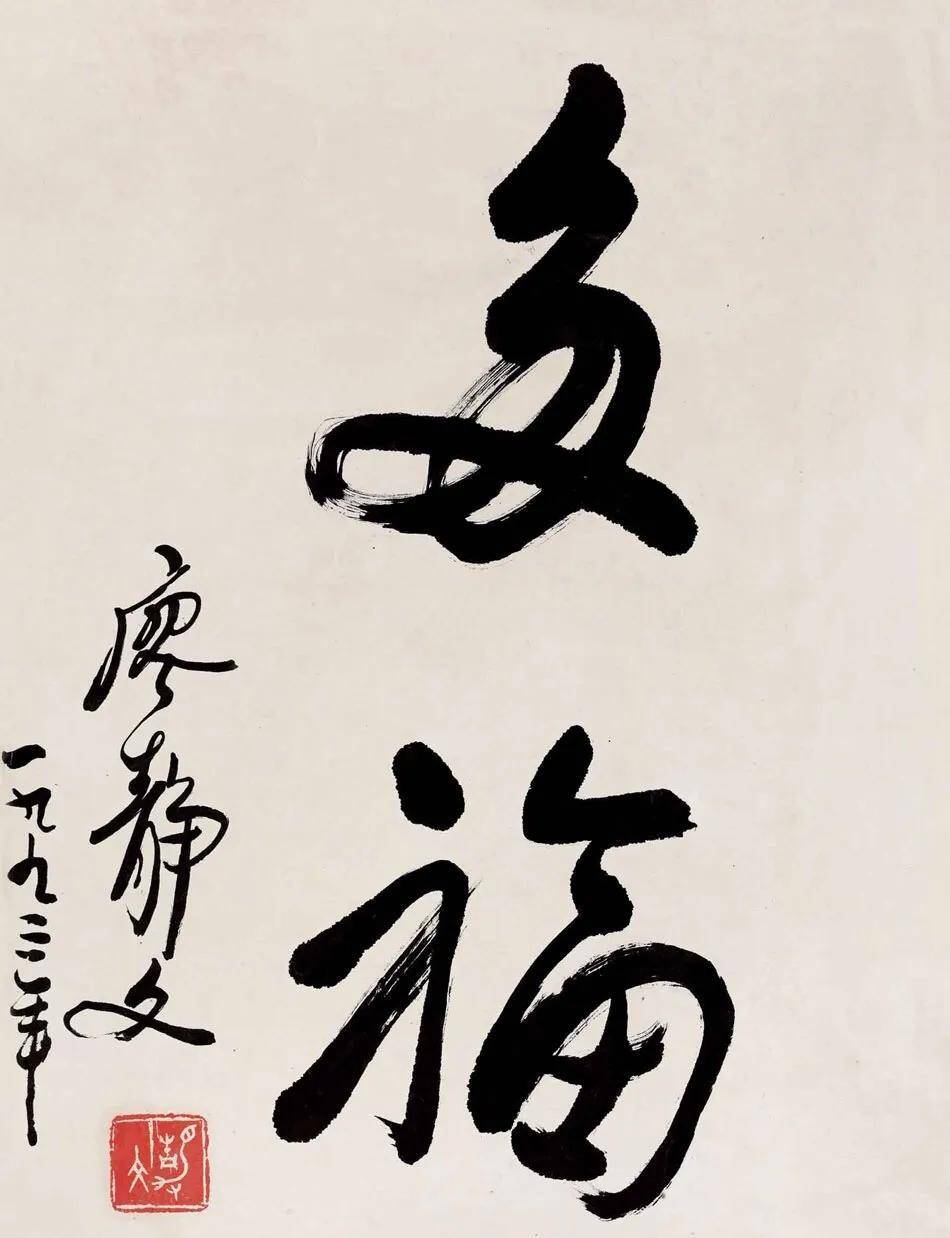 多福
廖静文
一九九三年